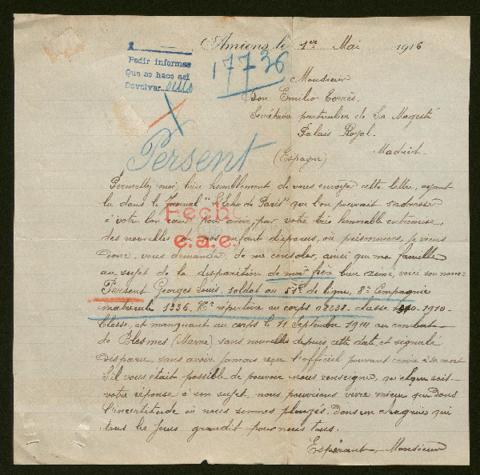 Amiens le 1er Mai 1916
Pedir informes
Que se hace asi
Devolver
17736
Monsieur
Don Emilio Torrès,
Secrétaire particulier de Sa Magesté
Palais Royal.
Madrid.
(Espagne)
Persent
Permettez moi, bien humblement de vous envoyer cette lettre, ayant
lu dans le Journal "L'Echo de Paris" que l'on pouvait s'adresser
à votre bon cœur pour avoir, par votre très honorable entremise
des nouvelles de enfant disparus, ou prisonniers, je viens
donc, vous demander, de me consoler, ainsi que ma famille
au sujet de la disparition de mon frère bien aimé, voici son nom:
Persent Georges Louis, soldat au 51e de ligne, 8e Compagnie
matricule 1336. No répertoire au corps 02038. classe 1910-
Classe, et manquant au corps le 11 Septembre 1914 au combat
de Blesmes (Marne) sans nouvelles depuis cette date, et signalé
disparu, sans avoir jamais reçu l'officiel pouvant croire à sa mort
S'il vous était possible de pouvoir nous renseigner, quelque soit
votre réponse à son sujet, nous pourrions vivre mieux que dans
l'incertitude où nous sommes plongés. Dans un chagrin qui
tous les jours grandit pour nous tous.
Espérant, Monsieur
Fecho
e.a.e.